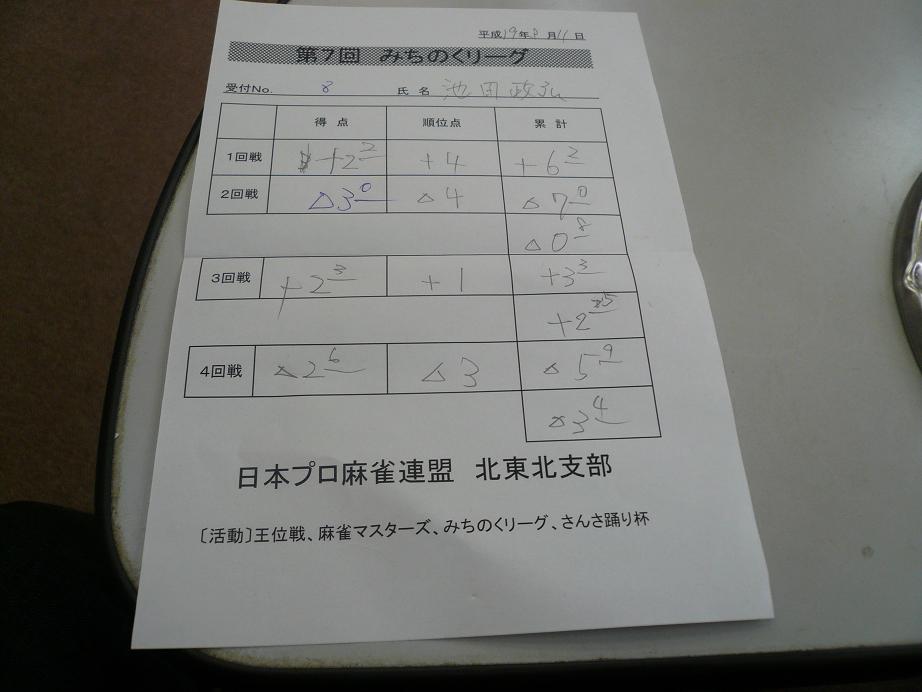 平成19年8月11日
第7回 みちのくリーグ
受付No. 8 氏名 池田政弘
得点 順位点 累計
1回戦 +2² +4 +6²
2回戦 △3⁰ △4 △7⁰
△0⁸
3回戦 +2³ +1 +3³
+2⁵
4回戦 △2⁶ △3 △5⁹
△3⁴
日本プロ麻雀連盟 北東北支部
〔活動〕王位戦、麻雀マスターズ、みちのくリーグ、さんさ踊り杯